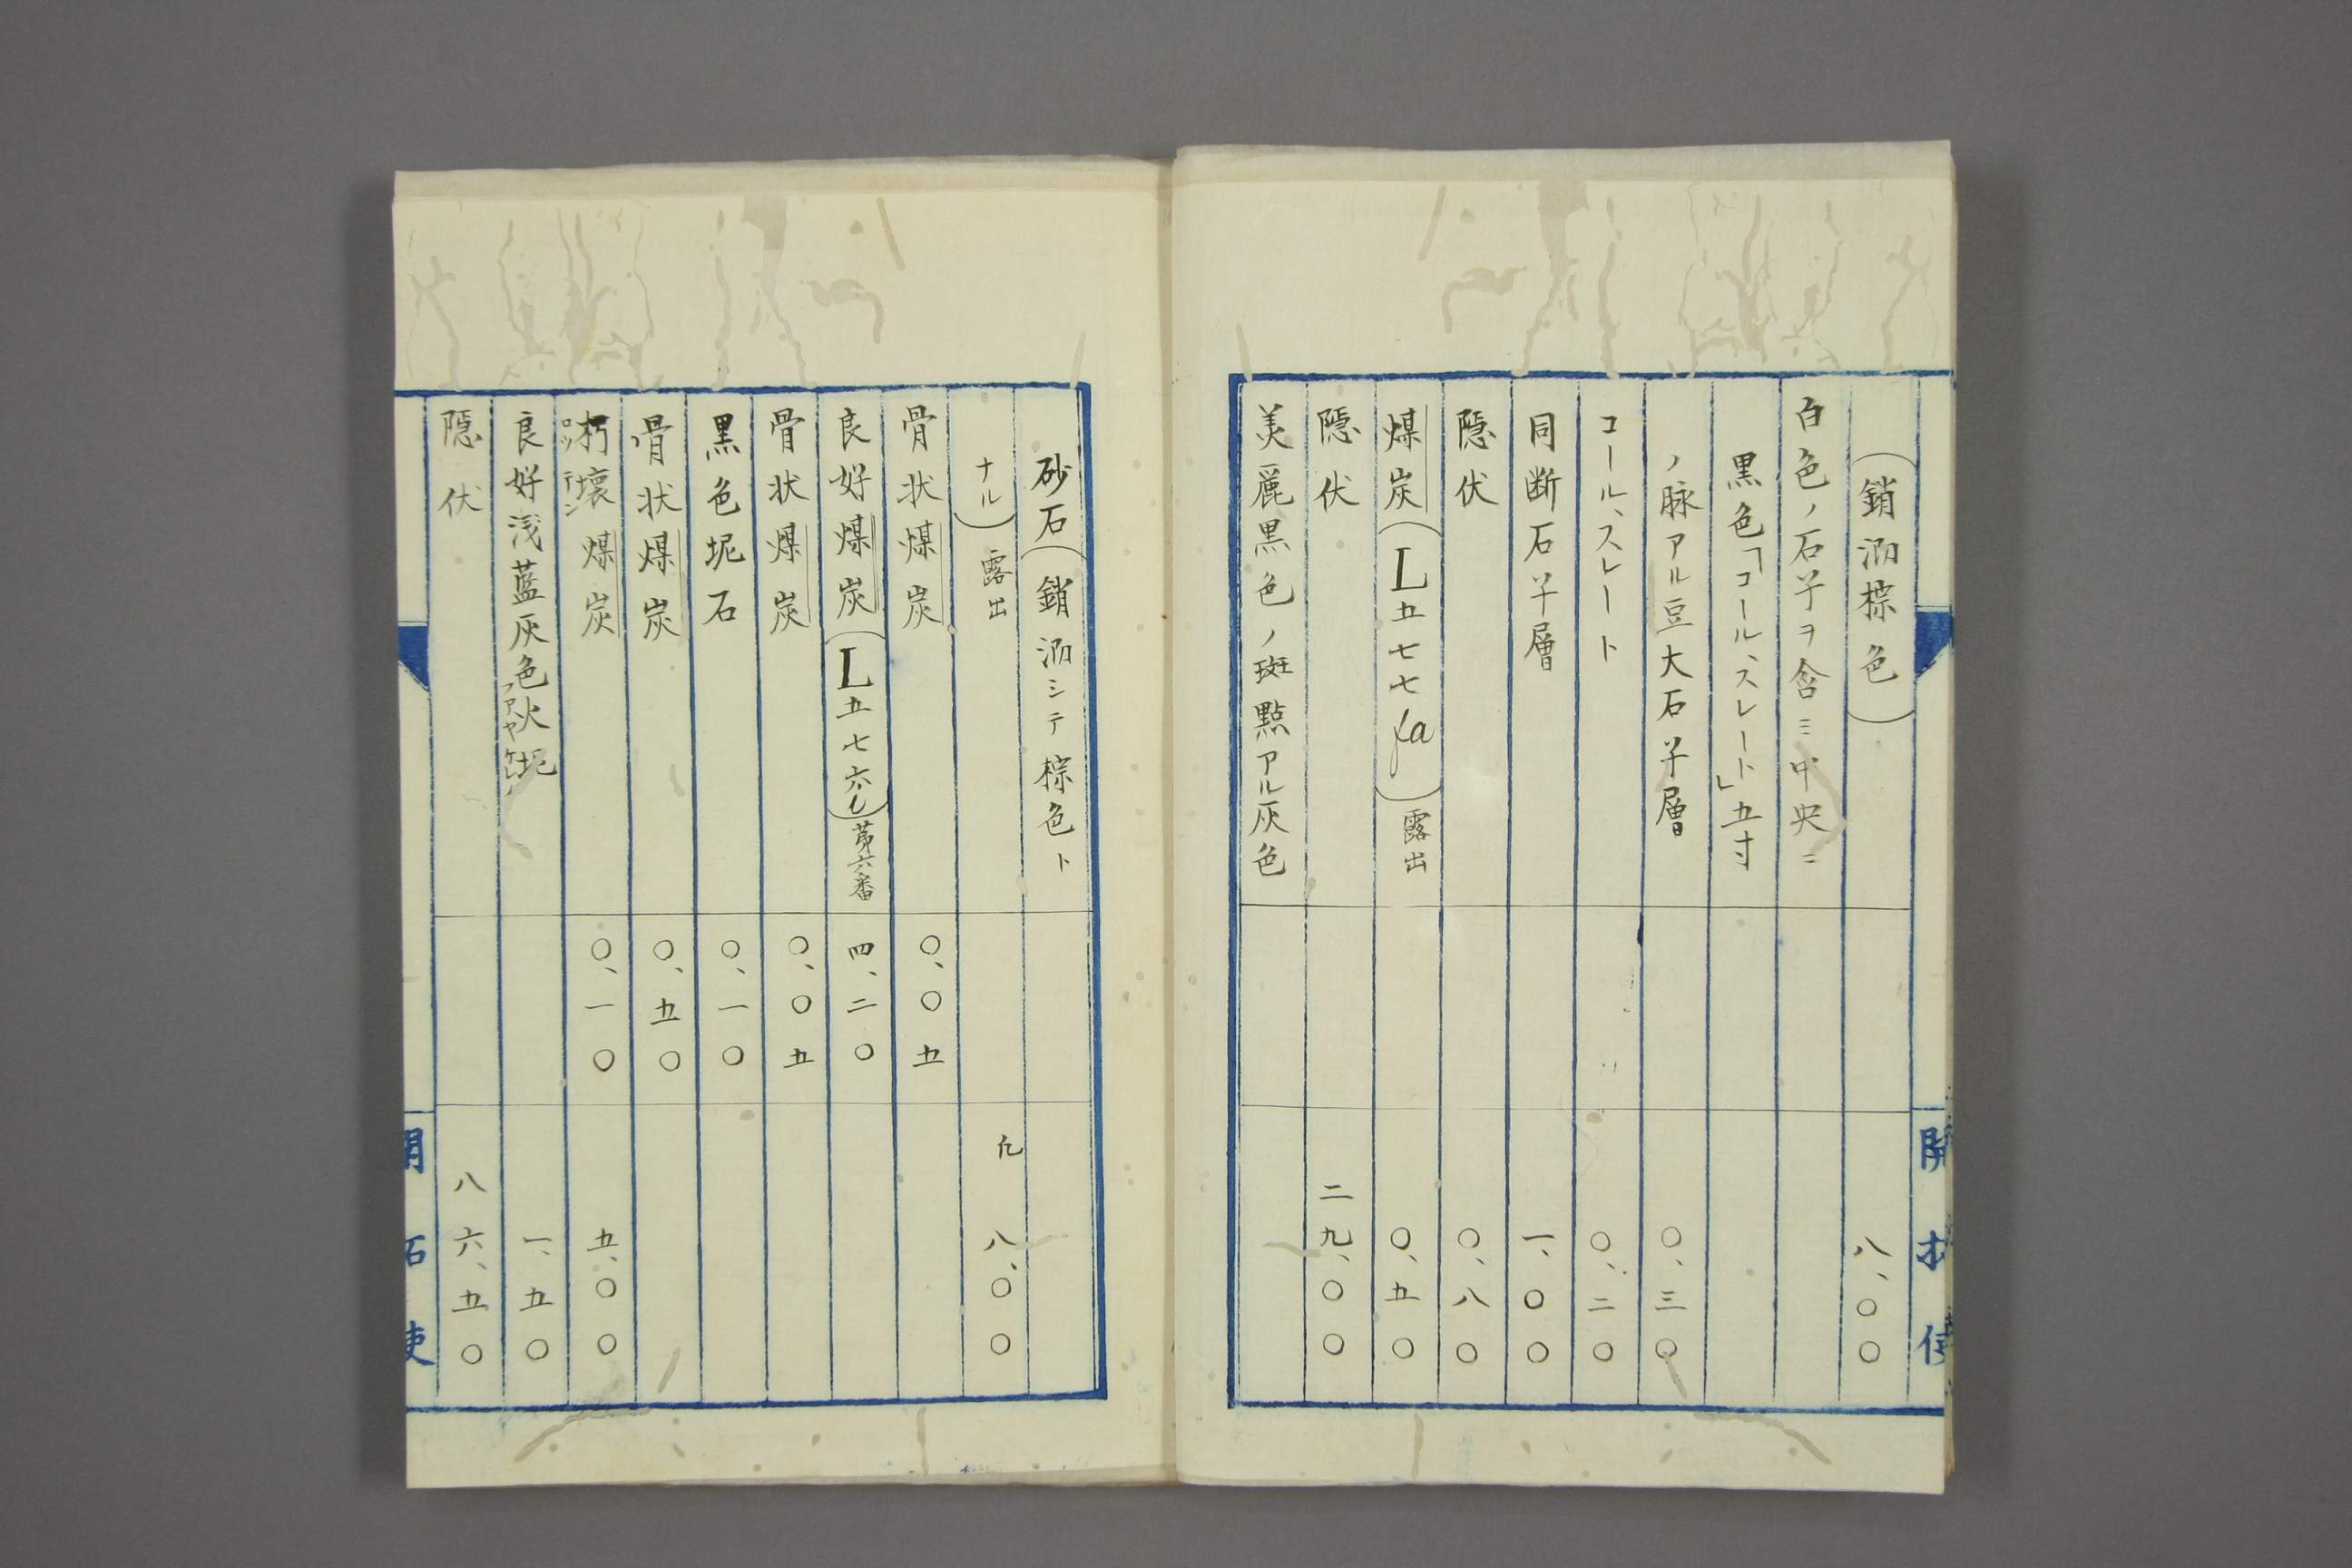 (銷泐棕色) 八、〇〇
白色ノ石羊ヲ含ミ中央ニ
黒色「コール、スレート」五寸
ノ脉アル豆大石羊層 〇、三〇
コール、スレート 〇、二〇
同断石羊層 一、〇〇
隠伏 〇、八〇
煤炭(L五七七fa)露出 〇、五〇
隠伏 二九、〇〇
美麗黒色ノ斑點アル灰色
開拓使
砂石(銷泐シテ棕色ト
ナル)露出 凢 八、〇〇
骨状煤炭 〇、〇五
良好煤炭(L五七六し)第六番 四、二〇
骨状煤炭 〇、〇五
黒色坭石 〇、一〇
骨状煤炭 〇、五〇
朽壊煤炭 〇、一〇 五、〇〇
ロッテン
良好浅藍灰色火坭 一、五〇
フアヤケレー
隠伏 八六、五〇
開拓使